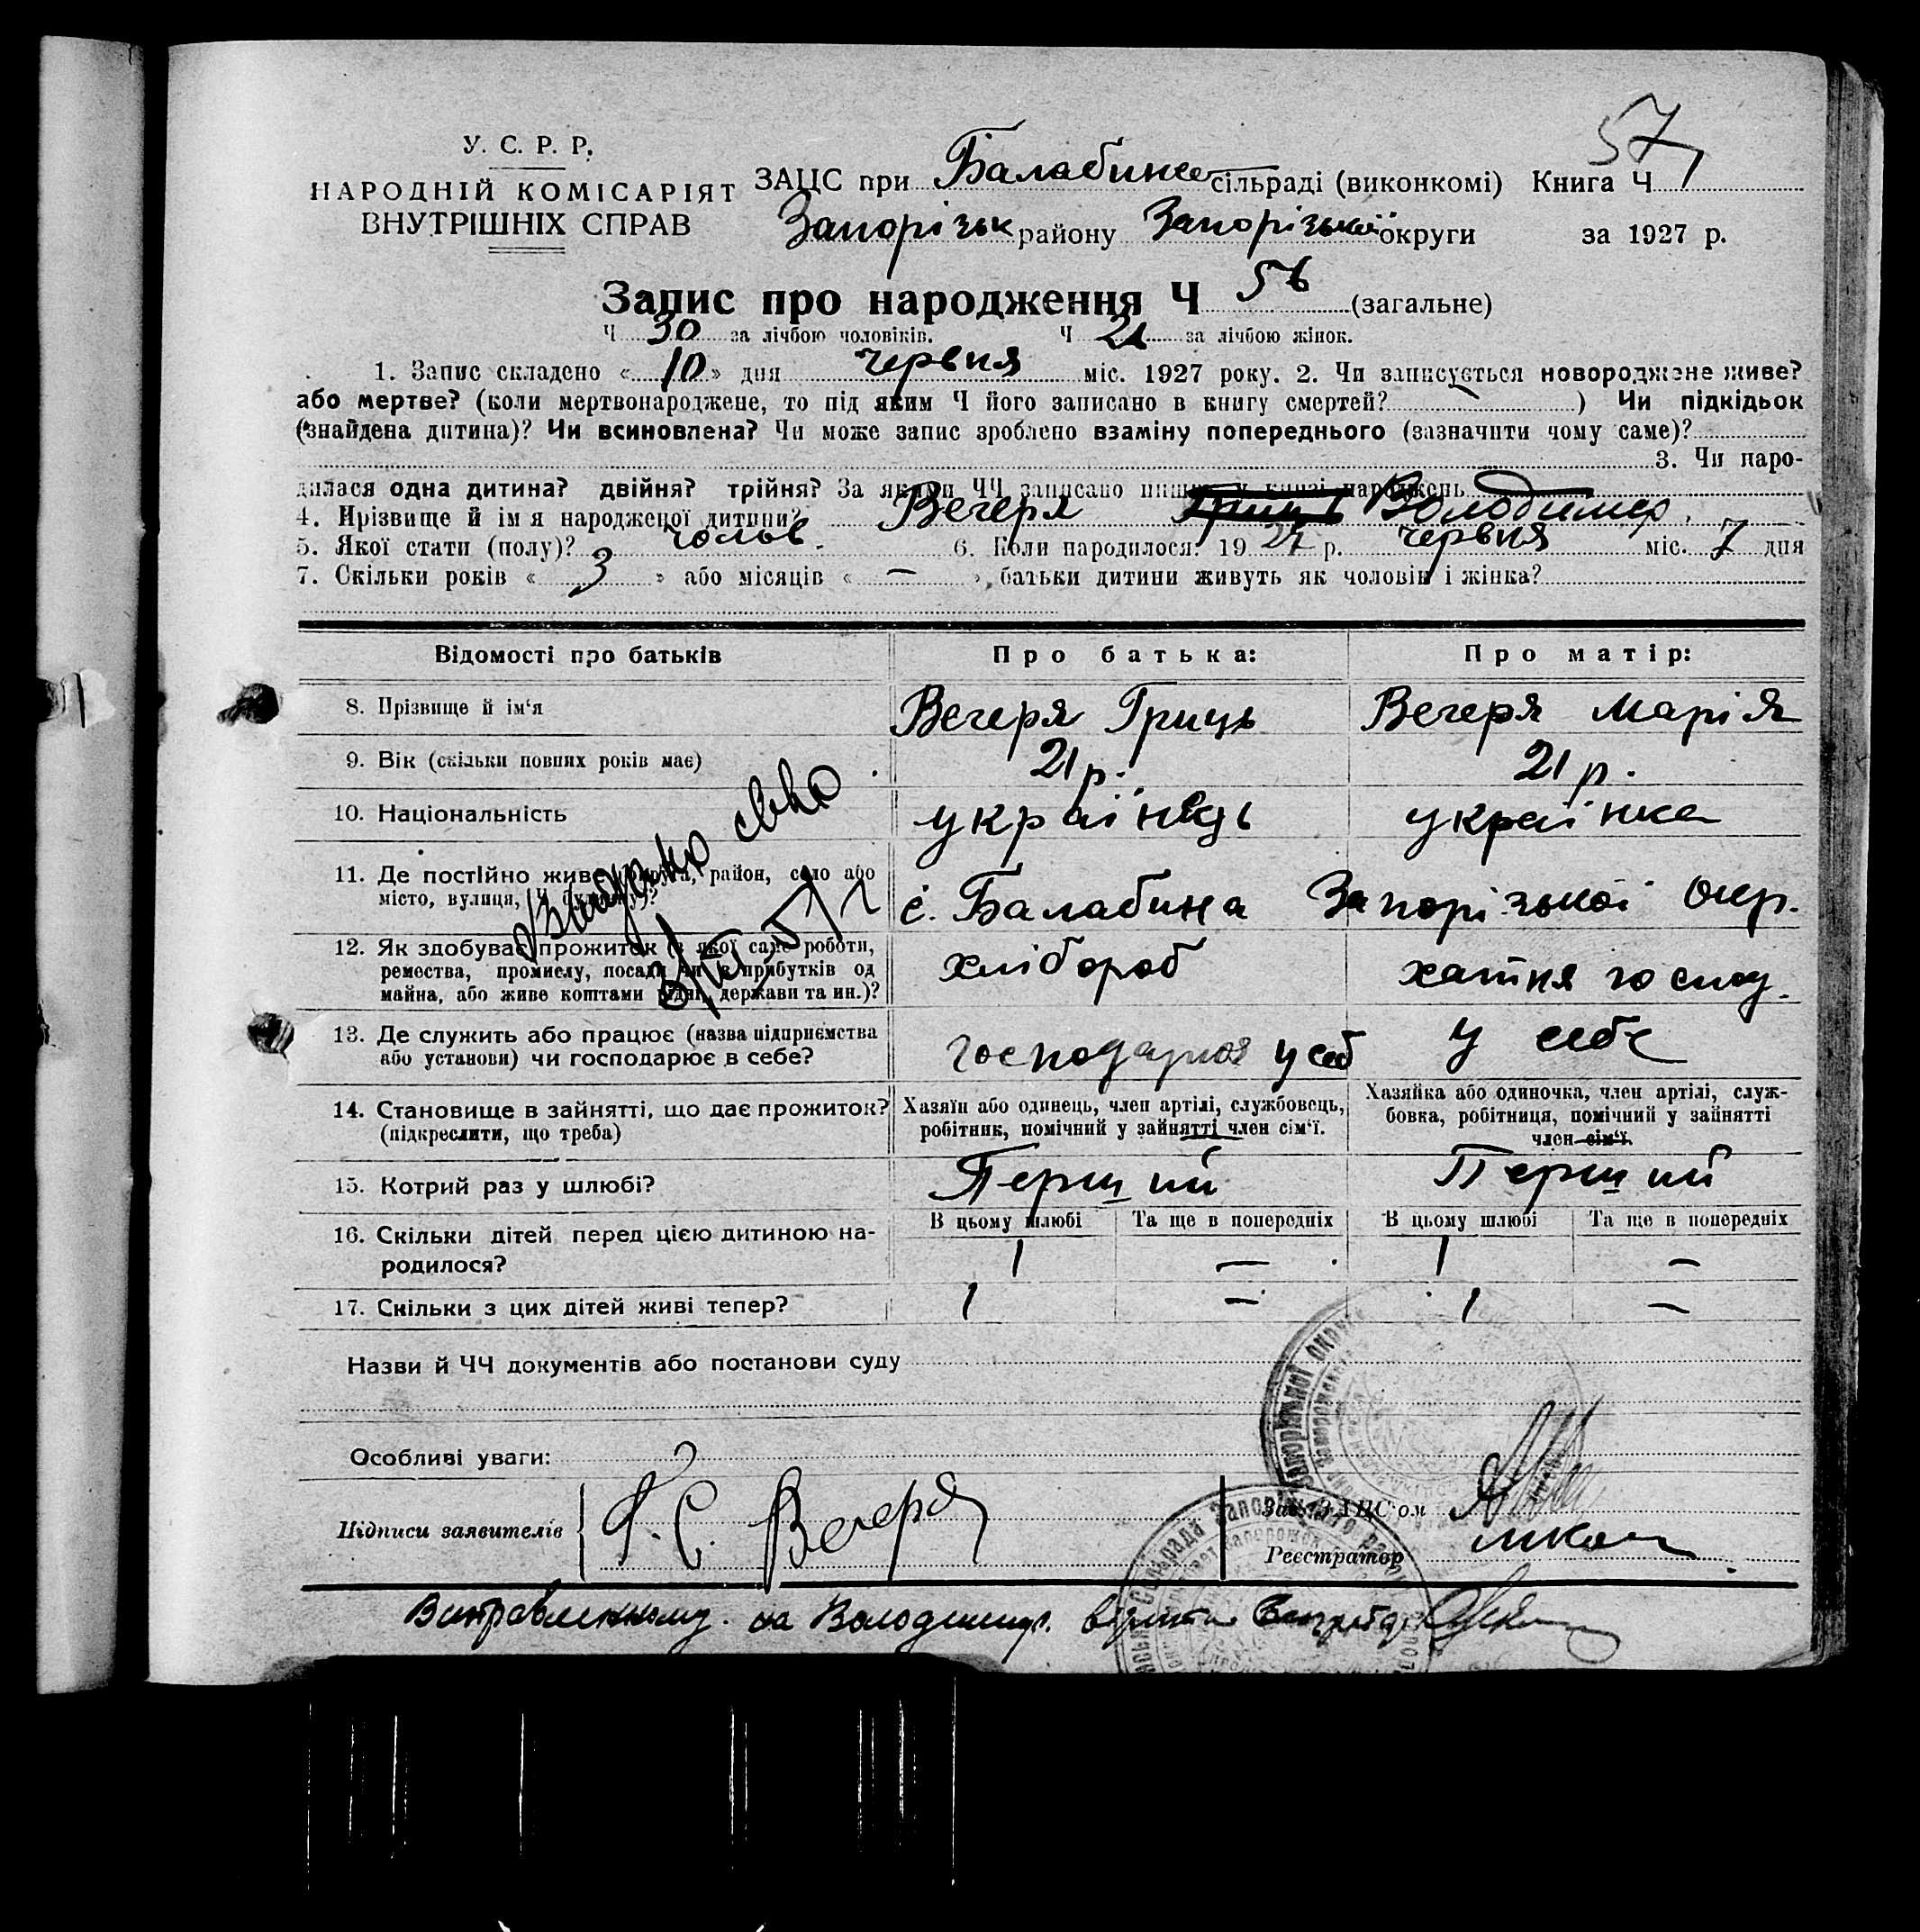 57
У. С. Р. Р.
НАРОДНІЙ КОМІСАРІЯТ
ВНУТРІШНІХ СПРАВ
ЗАЦС при Балабине сільраді (виконкомі) Книга Ч
Запорізьк району Запорізької округи за 1927 р.
Запис про народження Ч 56 (загальне)
Ч 30 за лічбою чоловіків. Ч за лічбою жінок.
1. Запис складено « 10 » дня червня міс. 1927 року. 2. Чи записується новороджене живе?
або мертве? (коли мертвонароджене, то під яким Ч його записано в книгу смертей? ) Чи підкідьок
(знайдена дитина)? Чи всиновлена? Чи може запис зроблено взаміну попереднього (зазначити чому саме)?
3. Чи наро-
дилася одна дитина? двійня? трійня? За якими ЧЧ записано инших у книзі народжень
4. Прізвище й ім'я народженої дитини? Вечеря Гриць Володимир
5. Якої стати (полу)? чолов. 6. Коли народилося? 1927 р. червня міс. 7 дня
7. Скільки років « 3 » або місяців « — », батьки дитини живуть як чоловік і жінка?
Відомості про батьків Про батька: Про матір:
8. Прізвище й ім'я Вечеря Гриць Вечеря Марія
9. Вік (скільки повних років має) 21 р. 21 р.
10. Національність українець українка
11. Де постійно живе округа, район, село або
місто, вулиця, Ч будинку)? с. Балабина Запорізької Окр.
12. Як здобуває прожиток (з якої саме роботи,
ремества, промислу, посади чи з прибутків од
майна, або живе коштами рідні, держави та ин.)? хлібороб хатня господ.
13. Де служить або працює (назва підприємства
або установи) чи господарює в себе? господарює у себ у себе
14. Становище в зайнятті, що дає прожиток?
(підкреслити, що треба)
Хазяїн або одинець, член артілі, службовець,
робітник, помічний у зайнятті член сім'ї.
Хазяйка або одиночка, член артілі, служ-
бовка, робітниця, помічний у зайнятті
член сім'ї.
15. Котрий раз у шлюбі? Перший Перший
В цьому шлюбі Та ще в попередніх В цьому шлюбі Та ще в попередніх
16. Скільки дітей перед цією дитиною на-
родилося? 1 — 1 —
17. Скільки з цих дітей живі тепер? 1 — 1 —
Назви й ЧЧ документів або постанови суду
Особливі уваги:
Підписи заявителів Г. С. Вечеря
Зав. ЗАЦС'ом
Реєстратор
Виправленному на Володимир вірити